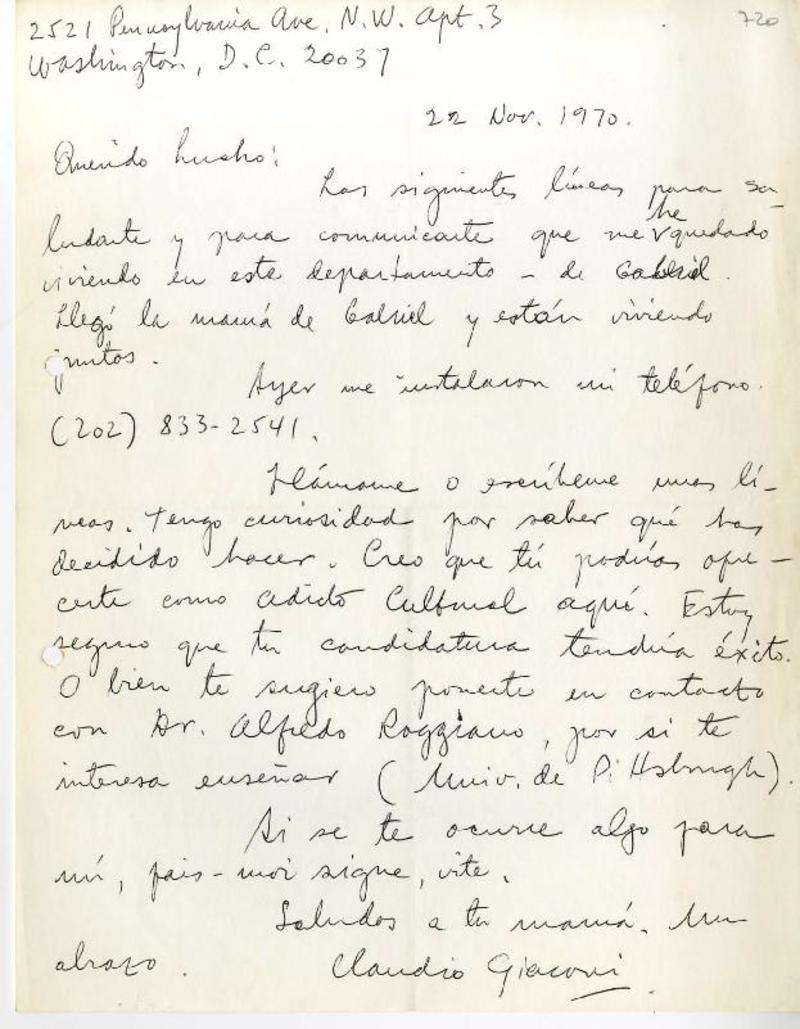 2521 Pennsylvania Ave. N.W. Apt. 3
720
Washington, D.C. 20037
22 Nov. 1970.
Querido Lucho:
Las siguientes líneas para sa-
ludarte y para comunicarte que me he quedado
viviendo en este departamento - de Gabriel.
Llegó la mamá de Gabriel y están viviendo
juntos.
Ayer me instalaron mi teléfono.
(202) 833-2541.
Llámame o escríbeme unas lí-
neas. Tengo curiosidad por saber qué has
decidido hacer. Creo que tú podrías ofre-
certe como adicto Cultural aquí. Estoy
seguro que tu candidatura tendría éxito.
O bien te sugiero ponerte en contacto
con Dr. Alfredo Roggiano, por si te
interesa enseñar (Univ. de Pittsburgh).
Si se te ocurre algo para
mí, fais-moi signe, vite.
Saludos a tu mamá. Un
abrazo.
Claudio Giaconi